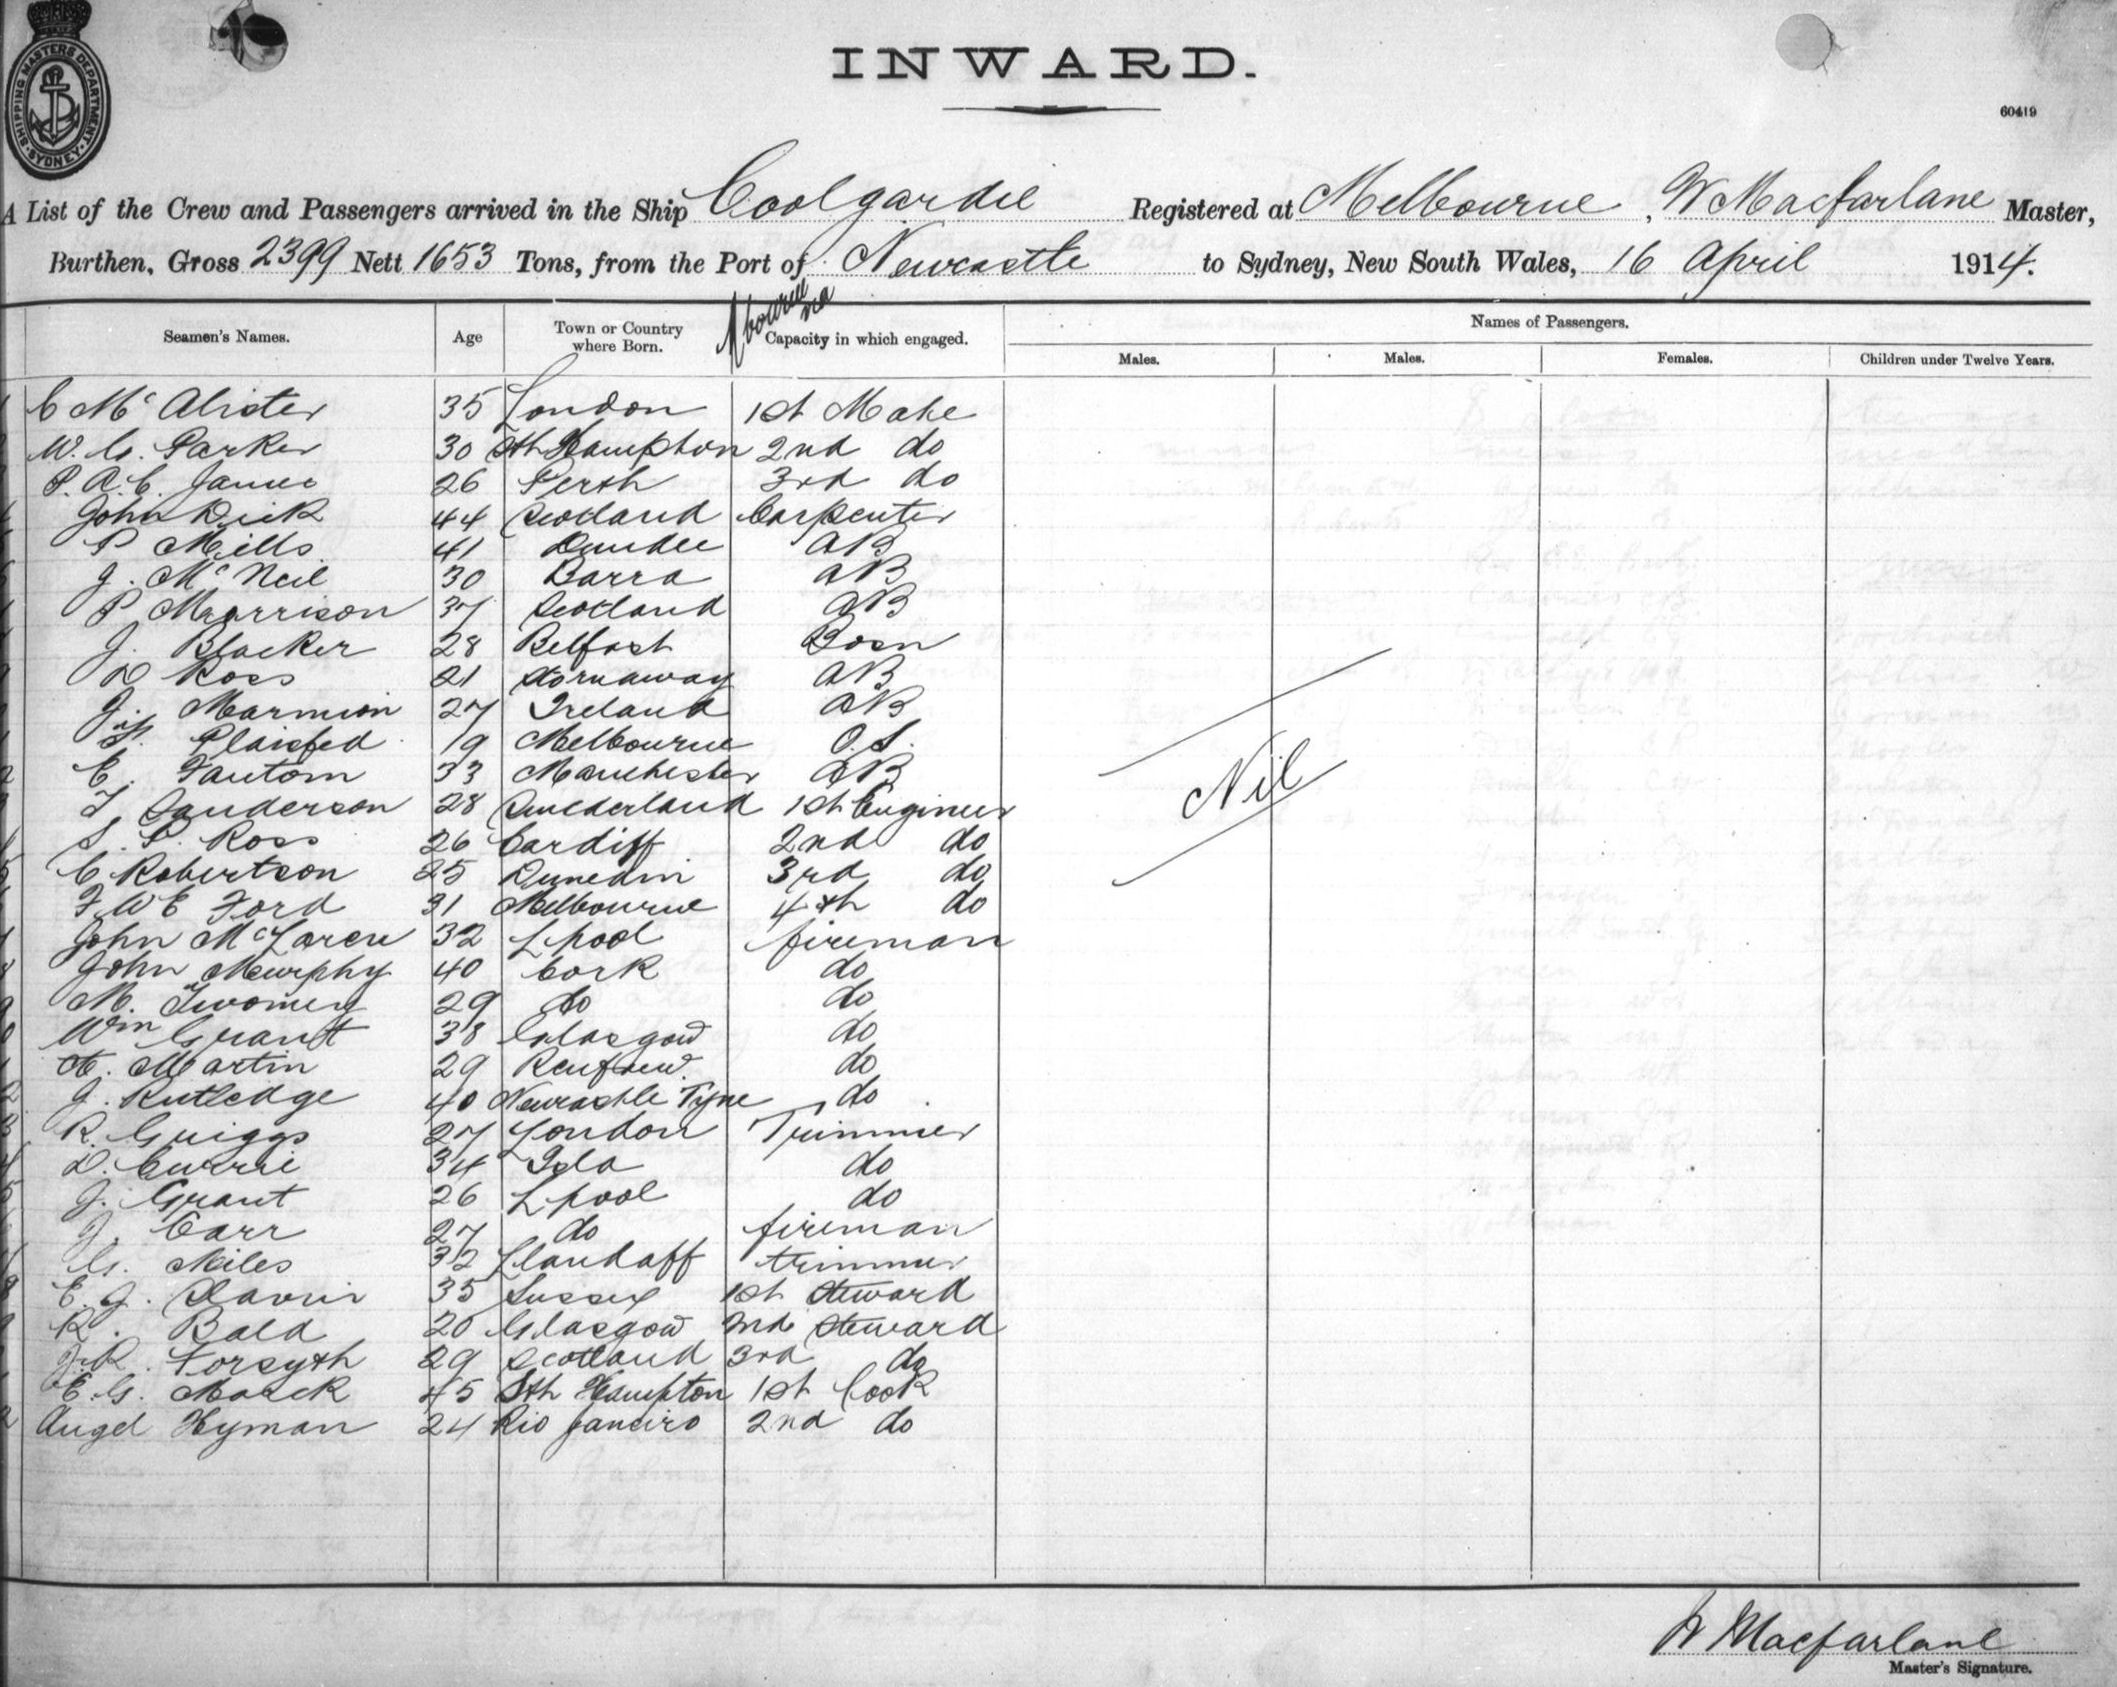 SHIPPING MASTERS DEPARTMENT. SYDNEY
INWARD.
60419
A List of the Crew and Passengers arrived in the Ship Coolgardie Registered at Melbourne, W Macfarlane Master,
Burthen, Gross 2399 Nett 1653 Tons, from the Port of Newcastle to Sydney, New South Wales, 16 April 1914.
Mbourne via
Seamen's Names. Age Town or Country where Born. Capacity in which engaged. Names of Passengers.
Males. Males. Females. Children under Twelve Years.
C McAlister 35 London 1st Mate
W. G. Parker 30 Sth Hampton 2nd do
P. A. C. James 26 Perth 3rd do
John Dick 44 Scotland Carpenter
P Mills 41 Dundee AB
J. McNeil 30 Barra AB
P Morrison 37 Scotland AB
J. Blacker 28 Belfast Bosn
D Ross 21 Stornaway AB
J. Marmion 27 Ireland AB
Plaisted 19 Melbourne O.S.
C. Fantom 33 Manchester AB
T Sanderson 28 Sunderland 1st Engineer
S. P. Ross 26 Cardiff 2nd do
C Robertson 25 Dunedin 3rd do
F W E Ford 31 Melbourne 4th do
John McLaren 32 Lpool fireman
John Murphy 40 Cork do
M. Twomey 29 do do
Wm Grant 38 Glasgow do
A. Martin 29 Renfrew. do
J. Rutledge 40 Newcastle Tyne do
R. Griggs 27 London Trimmer
D. Currie 34 Isla do
J. Grant 26 Lpool do
J. Carr 27 do fireman
G. Miles 32 Llandaff trimmer
E. J. Slavin 35 Sussex 1st Steward
R. Bald 20 Glasgow 2nd steward
J. R. Forsyth 29 Scotland 3rd do
E. G. Mauck 45 Sth Hampton 1st Cook
Angel Hyman 24 Rio Janeiro 2nd do
Nil
W Macfarlane
Master's Signature.